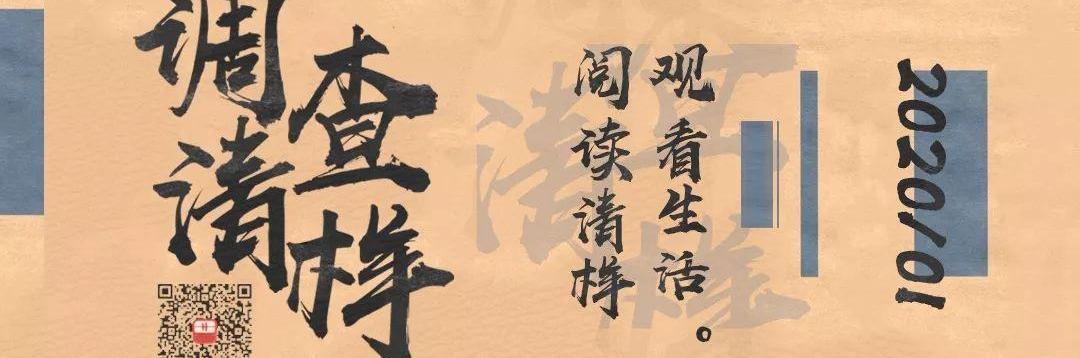 调查
清样
阅读清样
观看生活。
2020/01